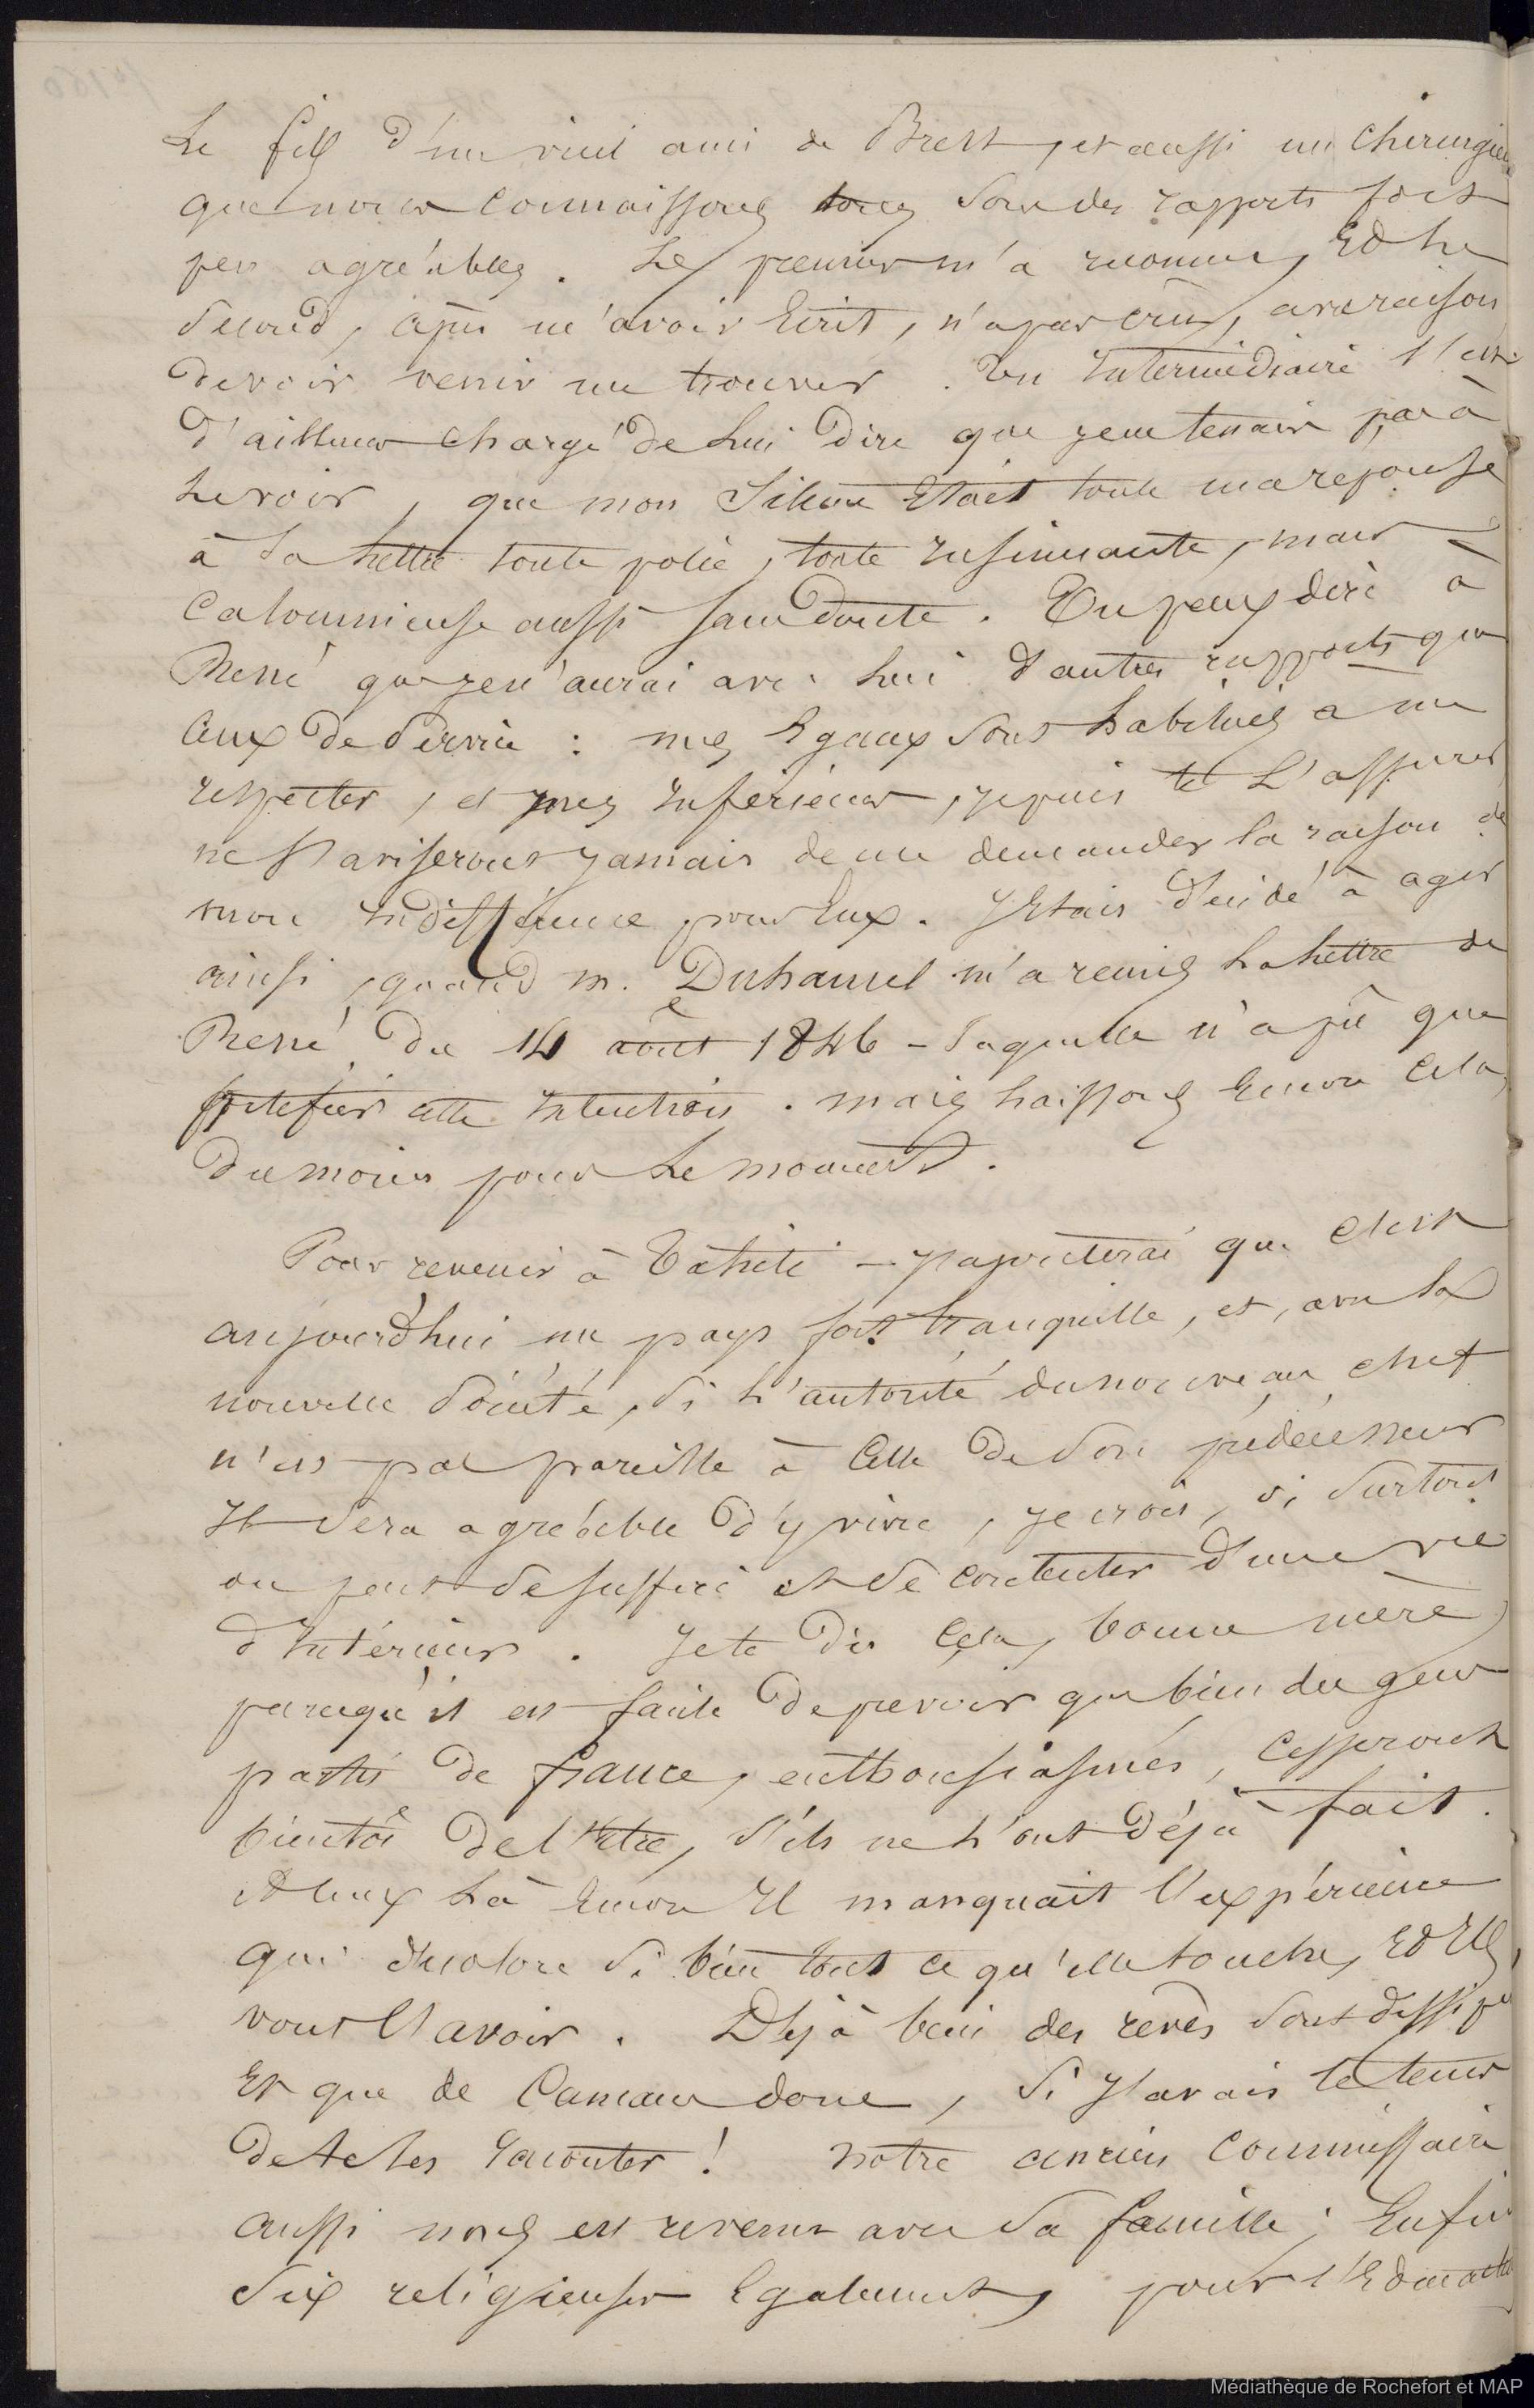 Le fils d'un vieil ami de Brest, et aussi un chirurgien
que nous connaissons tous sous des rapports fort
peu agréables. Le premier m'a reconnu, Et le
second, après m'avoir Ecrit, n'a pas crû, avec raison
devoir venir me trouver. Un Intermédiaire s'est
d'ailleurs chargé de lui dire que je ne tenais pas à
le voir, que mon silence Etait toute ma reponse
à sa lettre toute polie, toute Insinuante, mais
calomnieuse aussi sans doute. Tu peux dire à
René que je n'aurai avec lui d'autres rapports que
ceux de service : mes Egaux sont habitués à me
respecter, et mes Inférieurs, je puis te l'assurer
ne s'aviseront jamais de me demander la raison de
mon Indifférence pour Eux. J'Etais décidé à agir
ainsi, quand m. Duhamel m'a remis la lettre de
René du 14 août 1846 - laquelle n'a pû que
fortifier cette Intention. mais laissons Encore cela,
du moins pour le moment.
Pour revenir à Tahiti - j'ajouterai que c'est
aujourd'hui un pays fort tranquille, et, avec la
nouvelle société, si l'autorité du nouveau chef
n'est pas pareille à celle de son prédécesseur
Il sera agréable d'y vivre, je crois, si surtout
on peut se suffire et se contenter d'une vie
d'Intérieur. Je te dis cela, bonne mère,
parcequ'il est facile de prévoir que bien des gens
partis de france, enthousiasmés, cesseront
bientôt de l'être, s'ils ne l'ont déjà fait.
A ceux là Encore Il manquait l'expérience
qui décolore si bien tout ce qu'elle touche, Et Ils
vont l'avoir. Déjà bien des rêves sont dissipés
Et que de Cancans donc, si j'avais le tems
de te les raconter ! notre ancien commissaire
aussi nous est revenu avec sa famille ; Enfin
six religieuses Egalement, pour l'Education